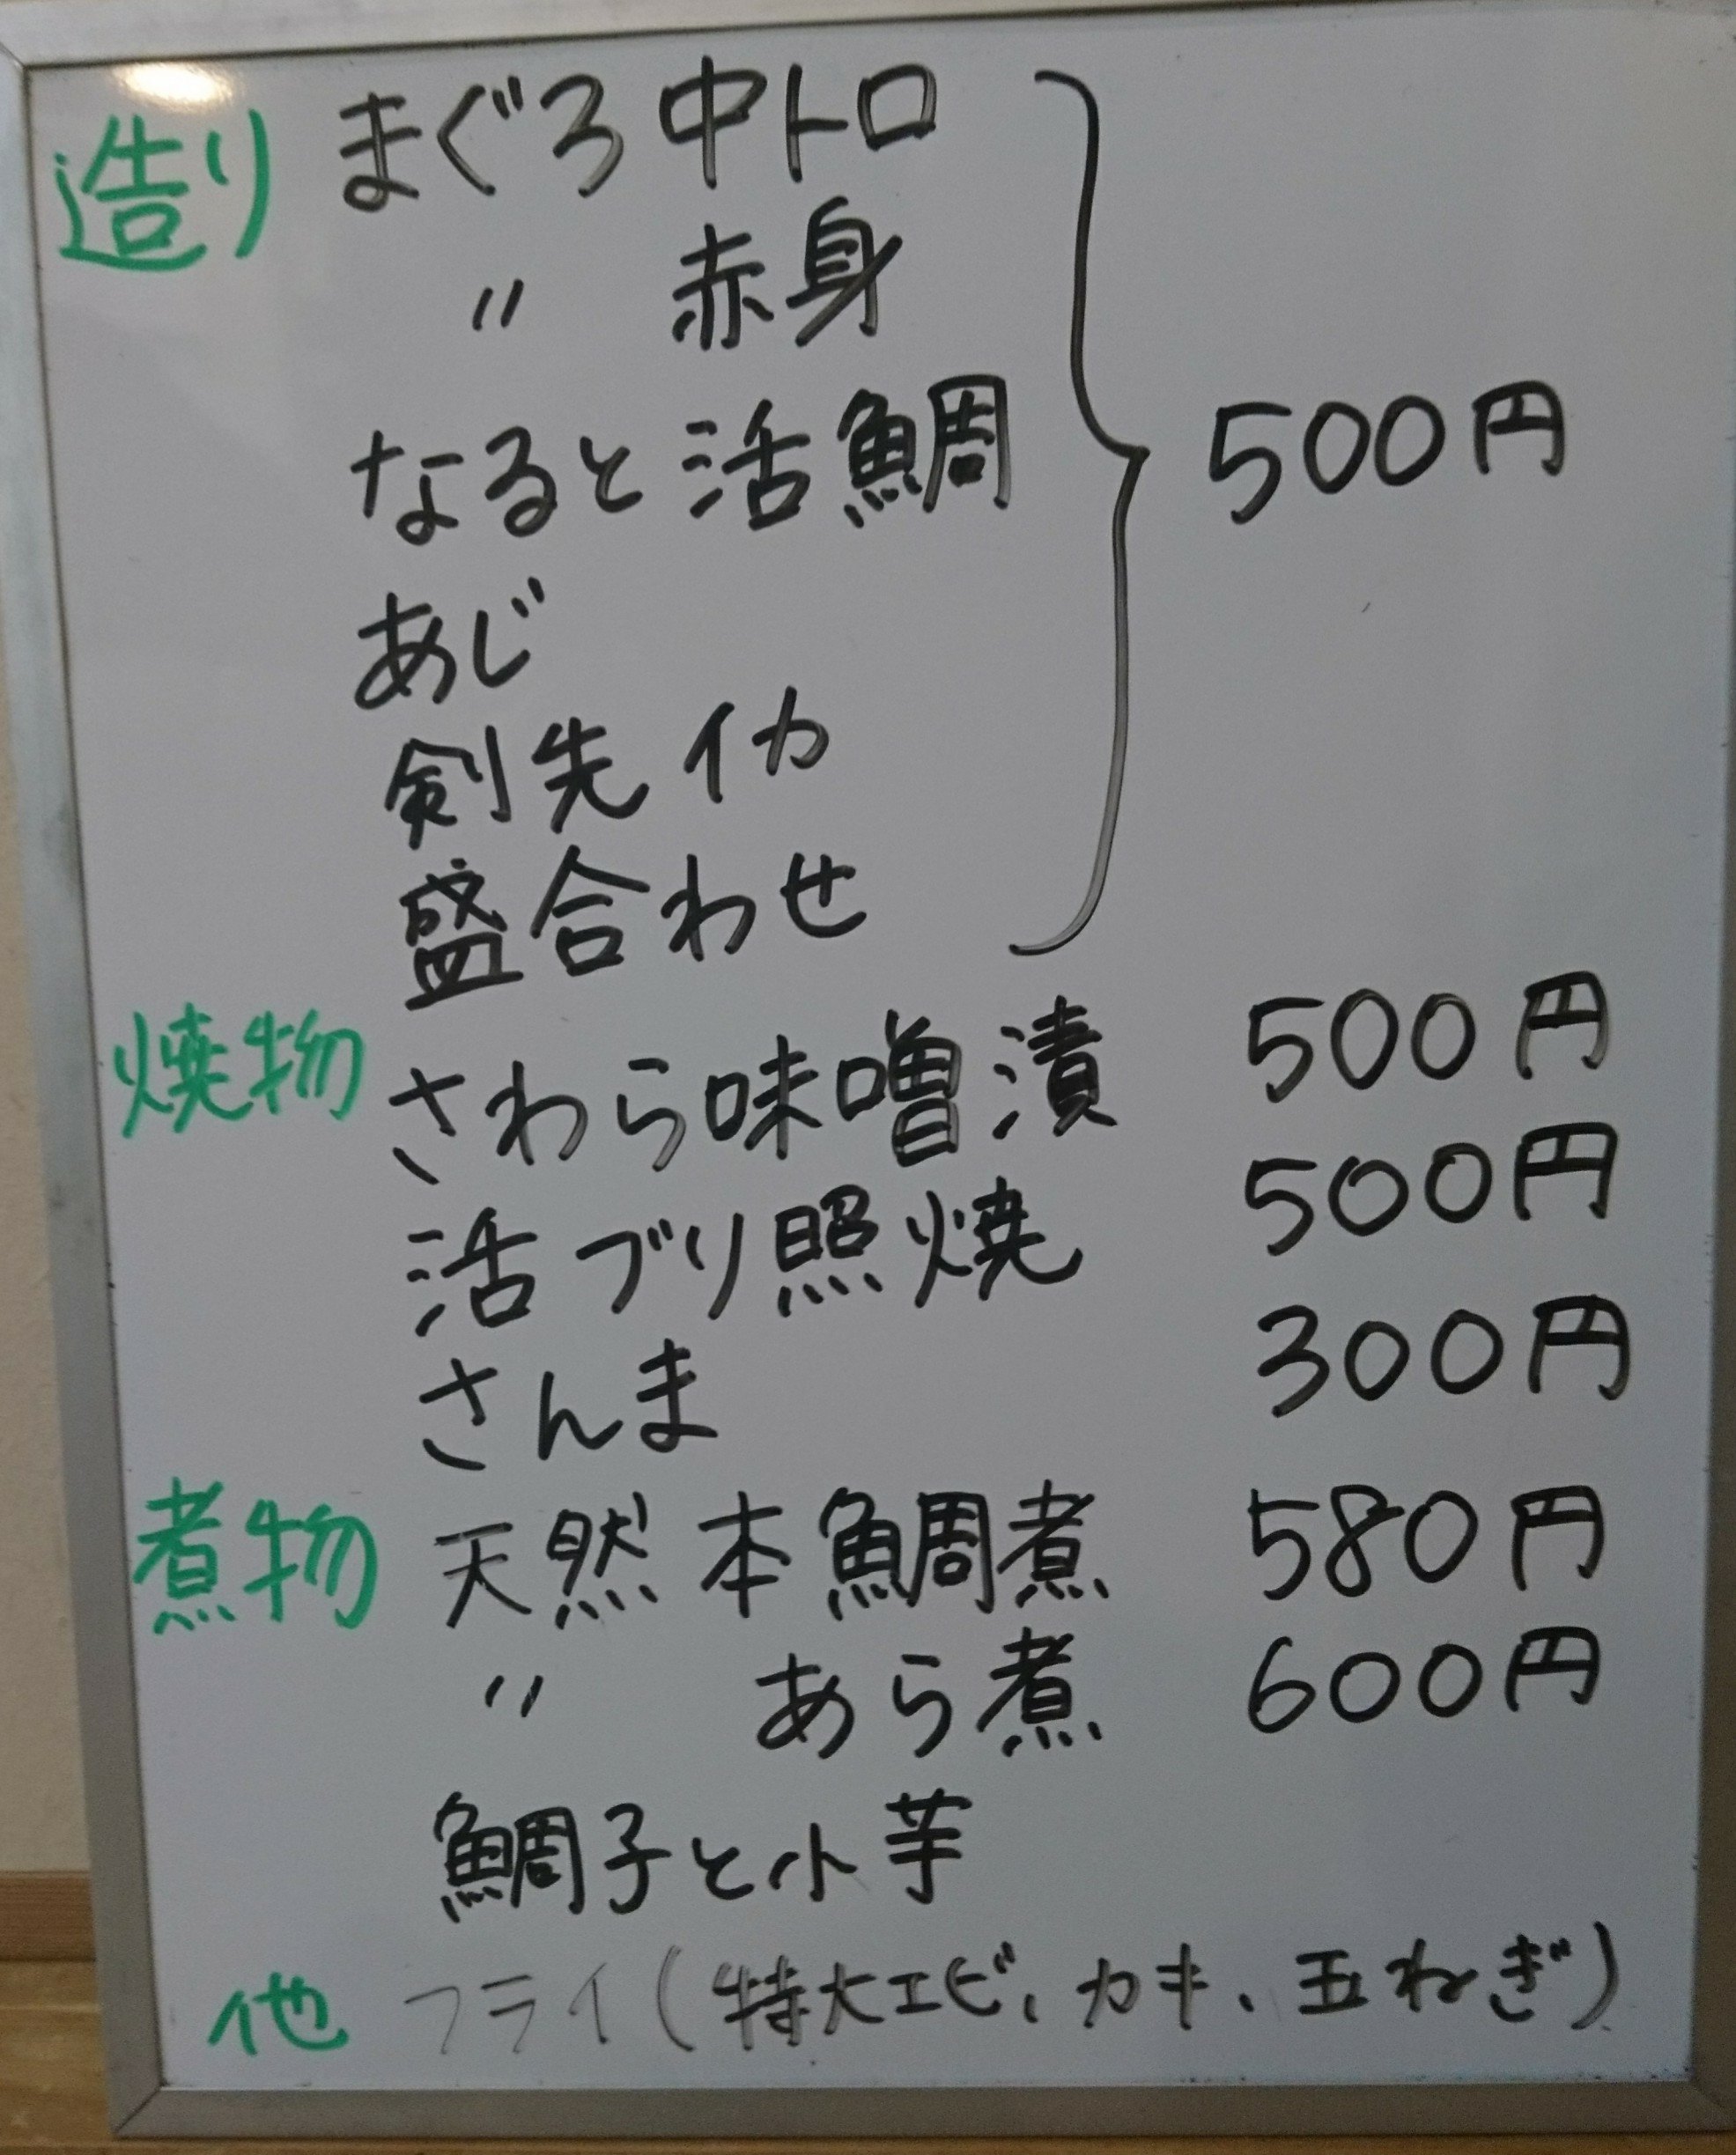 造り まぐろ 中トロ
〃 赤身
なると 活鯛
あじ
剣先 イカ
盛合わせ
500円
焼物 さわら味噌漬 500円
活ブリ照焼 500円
さんま 300円
煮物 天然 本鯛煮 580円
〃 あら煮 600円
鯛子と小芋
他 フライ(特大エビ、カキ、玉ねぎ)